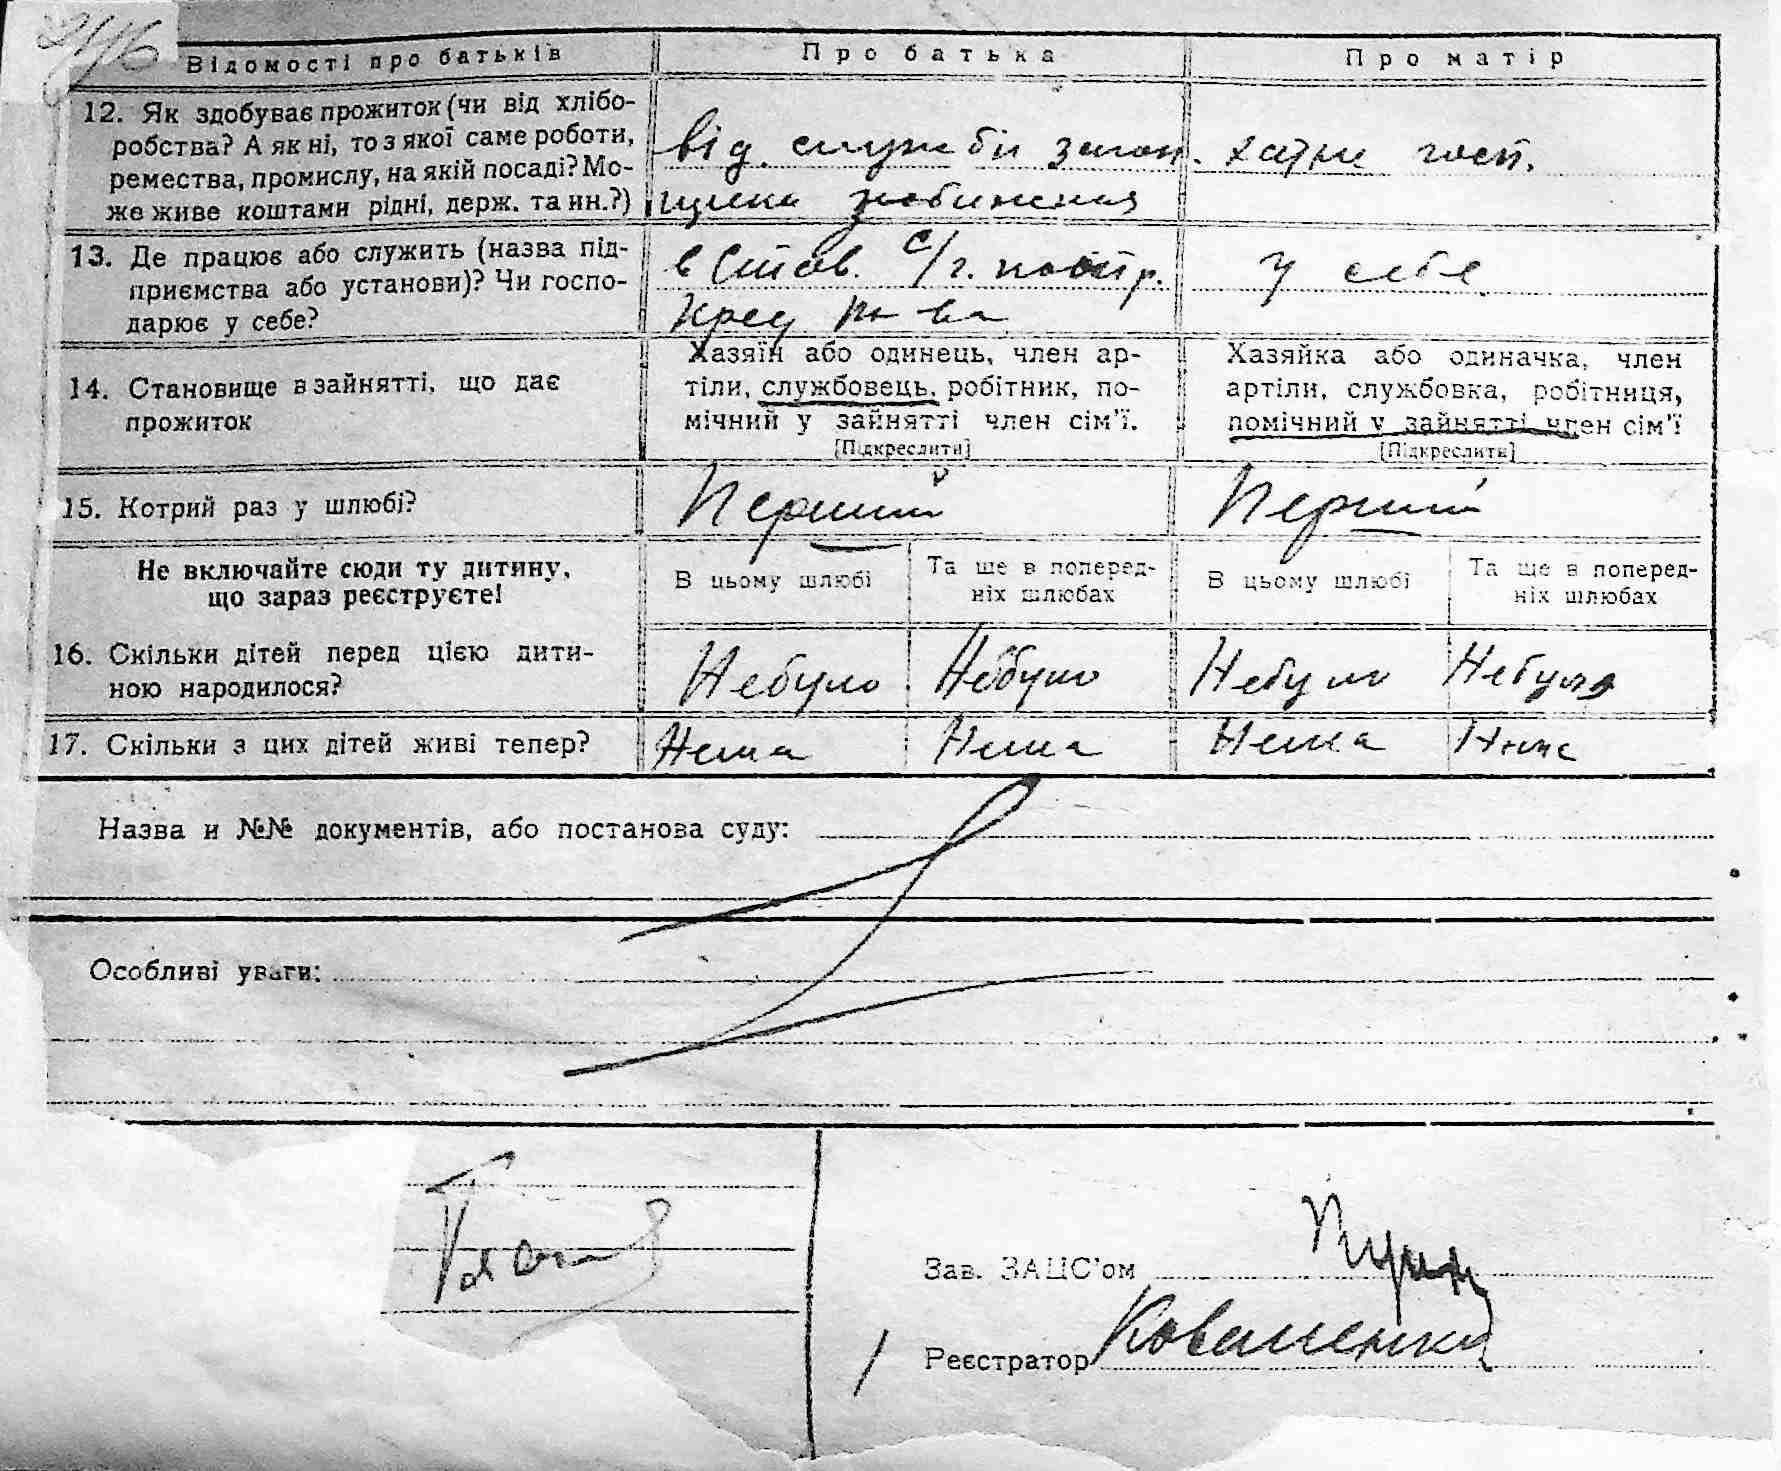 Відомості про батьків
Про батька
Про матір
12. Як здобуває прожиток (чи від хлібо-
робства? А як ні, то з якої саме роботи,
ремества, промислу, на якій посаді? Мо-
же живе коштами рідні, держ. та ин.?)
від служби загот.
щика
хатне госп.
13. Де працює або служить (назва під-
приємства або установи)? Чи госпо-
дарює у себе?
в Став. с/г.
Кред т-ва
у себе
14. Становище в зайнятті, що дає
прожиток
Хазяїн або одинець, член ар-
тіли, службовець, робітник, по-
мічний у зайнятті член сім'ї.
[Підкреслити]
Хазяйка або одиначка, член
артіли, службовка, робітниця,
помічний у зайнятті член сім'ї
[Підкреслити]
15. Котрий раз у шлюбі?
Перший
Перший
Не включайте сюди ту дитину,
що зараз реєструєте!
В цьому шлюбі
Та ще в поперед-
ніх шлюбах
В цьому шлюбі
Та ще в поперед-
ніх шлюбах
16. Скільки дітей перед цією дити-
ною народилося?
Небуло
Небуло
Небуло
Небуло
17. Скільки з цих дітей живі тепер?
Нема
Нема
Нема
Нема
Назва и №№ документів, або постанова суду:
Особливі уваги:
Зав. ЗАЦС'ом
Реєстратор Коваленко